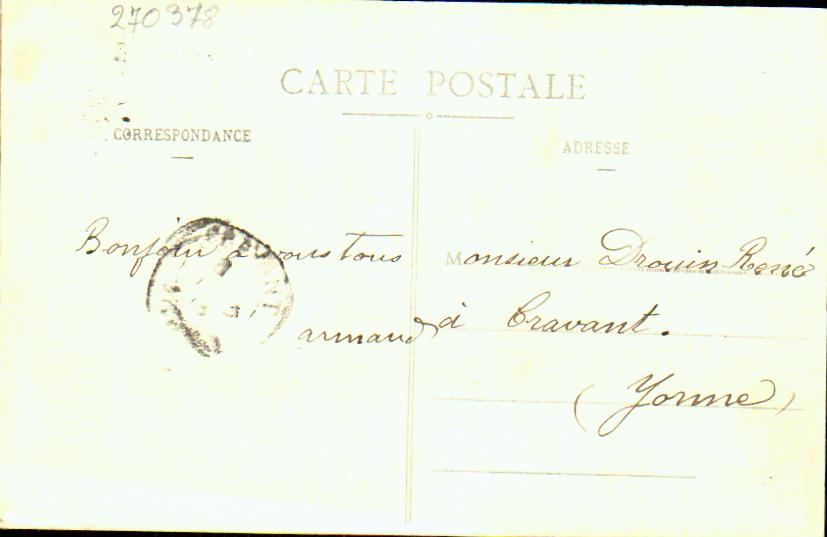 270378
CARTE POSTALE
CORRESPONDANCE
ADRESSE
Bonjour à vous tous
armand
Monsieur Drouin René
à Cravant.
(Yonne)